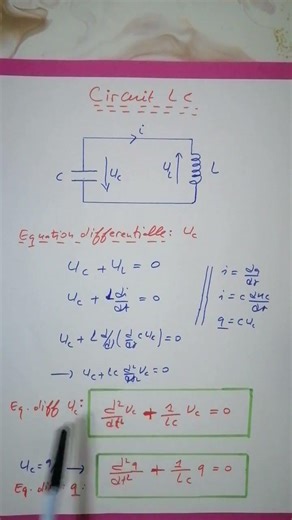 Circuit LC
i
C
u_c
u_L
L
Equation differentielle: u_c
u_c + u_L = 0
i = dq/dt
u_c + L di/dt = 0
i = c du_c/dt
q = c u_c
u_c + L d/dt (d/dt c u_c) = 0
→ u_c + LC d²/dt² u_c = 0
Eq. diff u_c:
d²u_c/dt² + 1/Lc u_c = 0
u_c = q →
d²q/dt² + 1/Lc q = 0
Eq. q: